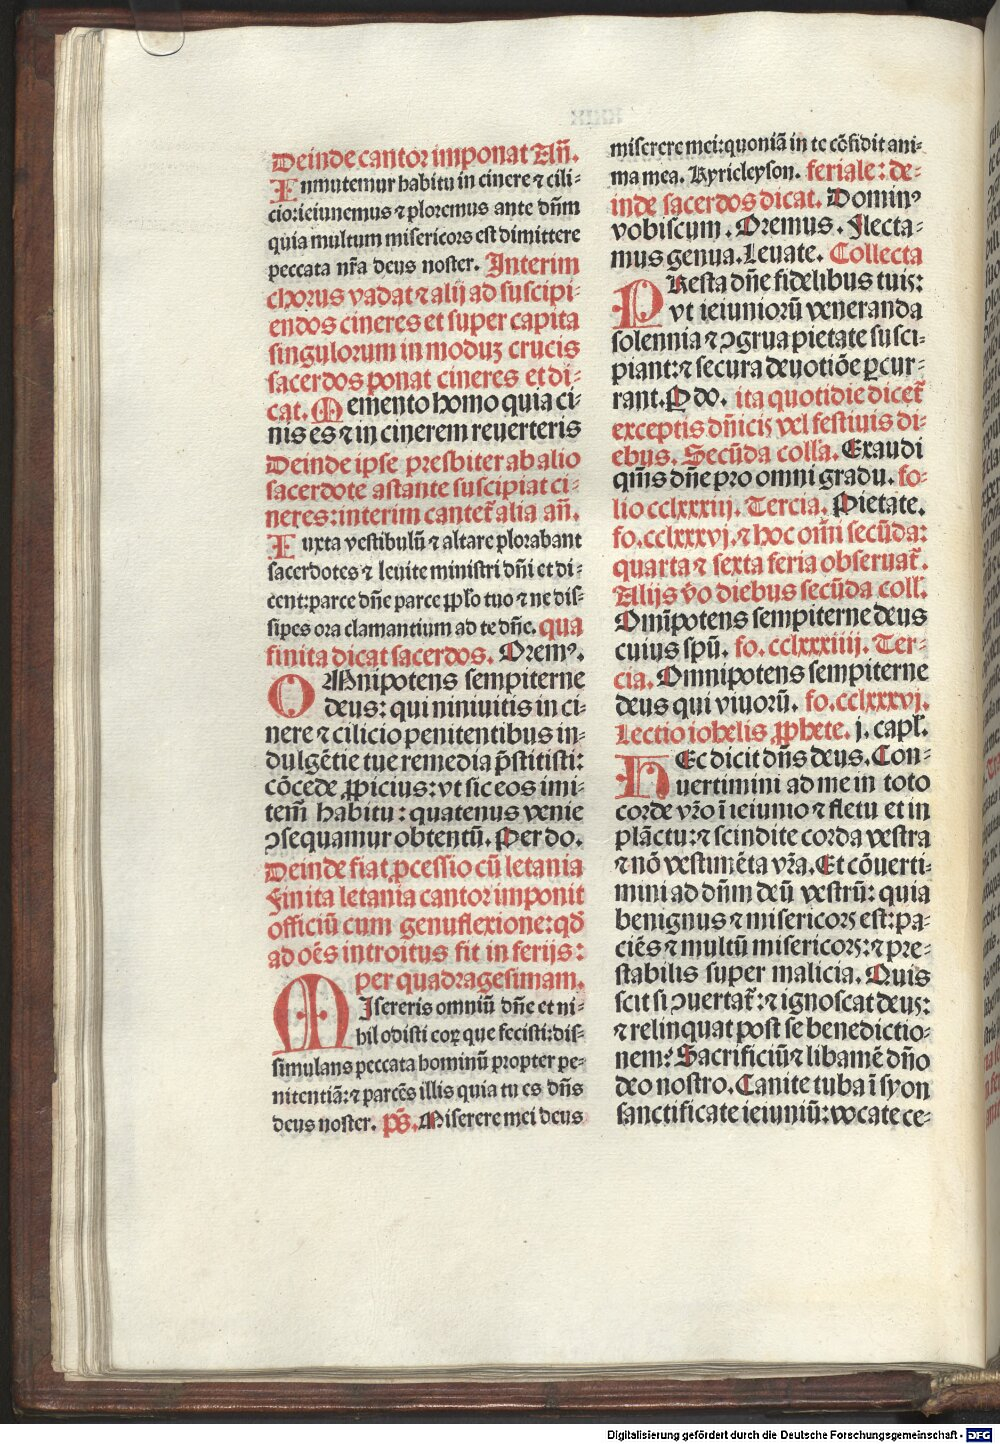 Deinde cantor imponat Añ.
Inmutemur habitu in cinere ⁊ cili-
cio: ieiunemus ⁊ ploremus ante dñm
quia multum misericors est dimittere
peccata nr̃a deus noster. Interim
chorus vadat ⁊ alij ad suscipi-
endos cineres et super capita
singulorum in moduꝫ crucis
sacerdos ponat cineres et di-
cat. Memento homo quia ci-
nis es ⁊ in cinerem reuerteris
Deinde ipse presbiter ab alio
sacerdote astante suscipiat ci-
neres: interim cantet̃ alia añ.
Iuxta vestibulū ⁊ altare plorabant
sacerdotes ⁊ leuite ministri dñi et di-
cent: parce dñe parce ꝓpl̃o tuo ⁊ ne dis-
sipes ora clamantium ad te dñe. qua
finita dicat sacerdos. Oremꝰ.
OMnipotens sempiterne
deus: qui niniuitis in ci-
nere ⁊ cilicio penitentibus in-
dulgētie tue remedia p̄stitisti:
cōcede ꝓpicius: vt sic eos imi-
tem̃ habitu: quatenus venie
ↄsequamur obtentū. Per do.
Deinde fiat ꝓcessio cū letania
Finita letania cantor imponit
officiū cum genuflexione: qd̃
ad oēs introitus fit in ferijs:
per quadragesimam.
MIsereris omniū dñe et ni-
hil odisti eoꝝ que fecisti: dis-
simulans peccata hominū propter pe-
nitentiā: ⁊ parcēs illis quia tu es dñs
deus noster. ps̃. Miserere mei deus
miserere mei: quoniā in te cōfidit ani-
ma mea. Kyrieleyson. feriale: de-
inde sacerdos dicat. Dominꝰ
vobiscum. Oremus. Flecta-
mus genua. Leuate. Collecta
PResta dñe fidelibus tuis:
vt ieiuniorū veneranda
solennia ⁊ ↄgrua pietate susci-
piant: ⁊ secura deuotiōe ꝑcur-
rant. P do. ita quotidie dicet̃
exceptis dñicis vel festiuis di-
ebus. Secūda coll'a. Exaudi
qm̃s dñe pro omni gradu. fo-
lio cclxxxiij. Tercia. Pietate.
fo. cclxxxvj. ⁊ hoc om̃i secūda:
quarta ⁊ sexta feria obseruat̃.
Alijs v̊o diebus secūda coll.
Omĩpotens sempiterne deus
cuius spū. fo. cclxxxiiij. Ter-
cia. Omnipotens sempiterne
deus qui viuorū. fo. cclxxxvj.
Lectio iohelis ꝓphete. j. capl̃.
HEc dicit dñs deus. Con-
uertimini ad me in toto
corde vr̃o ī ieiunio ⁊ fletu et in
plāctu: ⁊ scindite corda vestra
⁊ nō vestimēta vr̃a. Et cōuerti-
mini ad dñm deū vestrū: quia
benignus ⁊ misericors est: pa-
ciēs ⁊ multū misericors: ⁊ pre-
stabilis super malicia. Quis
scit si ↄuertat̃: ⁊ ignoscat deus:
⁊ relinquat post se benedictio-
nem? Sacrificiū ⁊ libamē dño
deo nostro. Canite tuba ī syon
sanctificate ieiuniū: vocate ce-
Digitalisierung gefördert durch die Deutsche Forschungsgemeinschaft - DFG